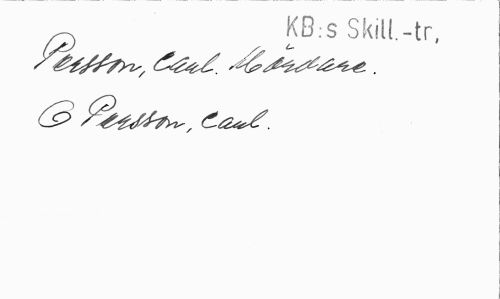 KB:s Skill.-tr,
Persson, Carl. Mördare.
Persson, Carl.